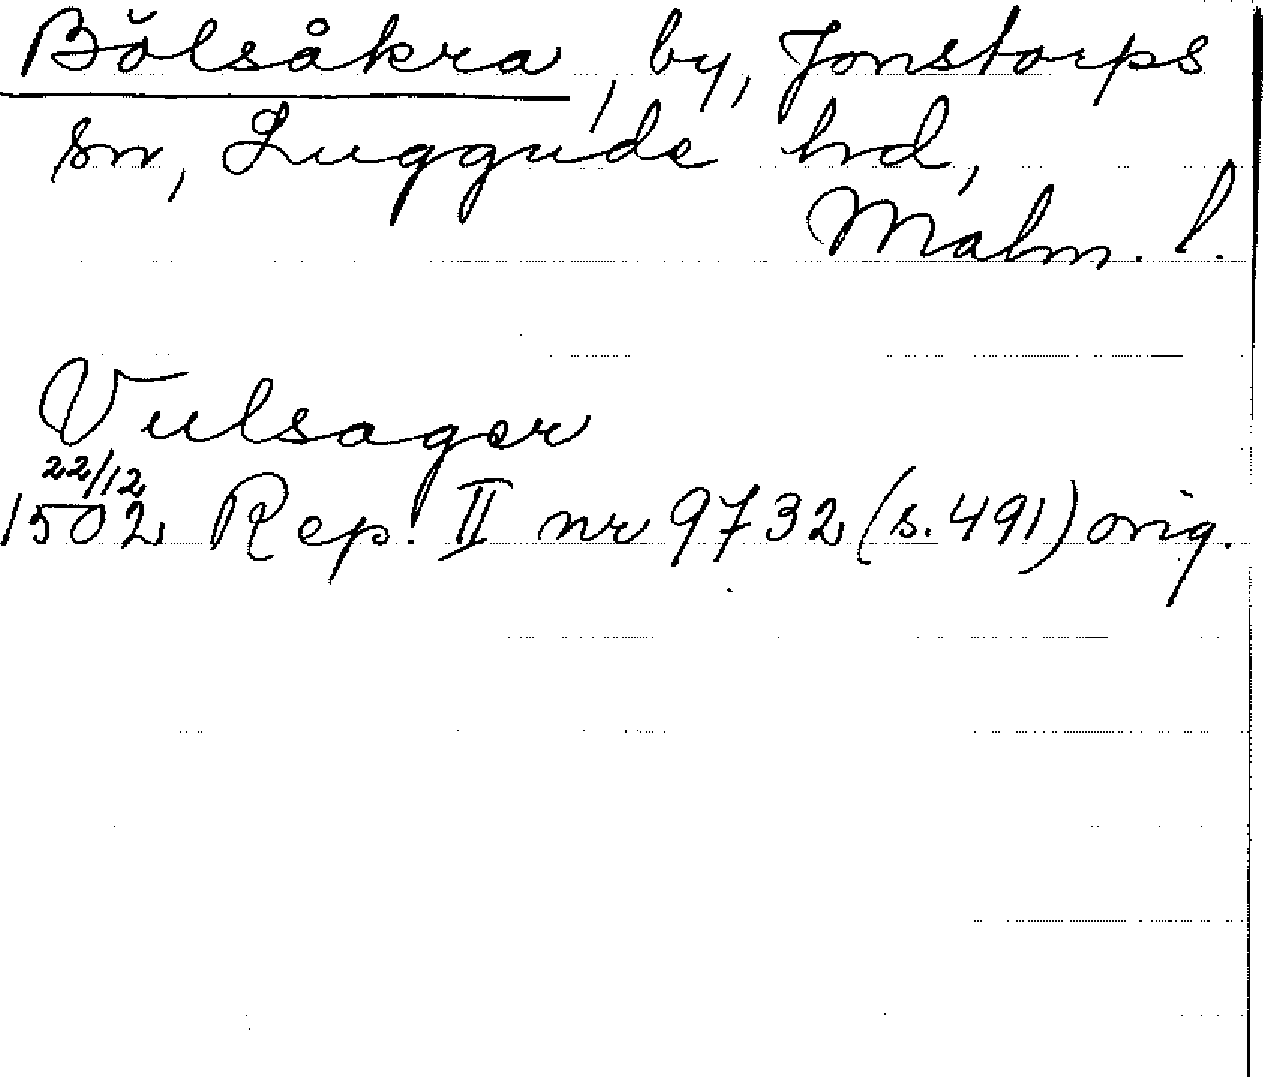 Bölsåkra, by, Jonstorps
sn, Luggude hrd,
Malm. l.
Vulsager
22/12
1502 Rep. II nr 9732 (s. 491) orig.